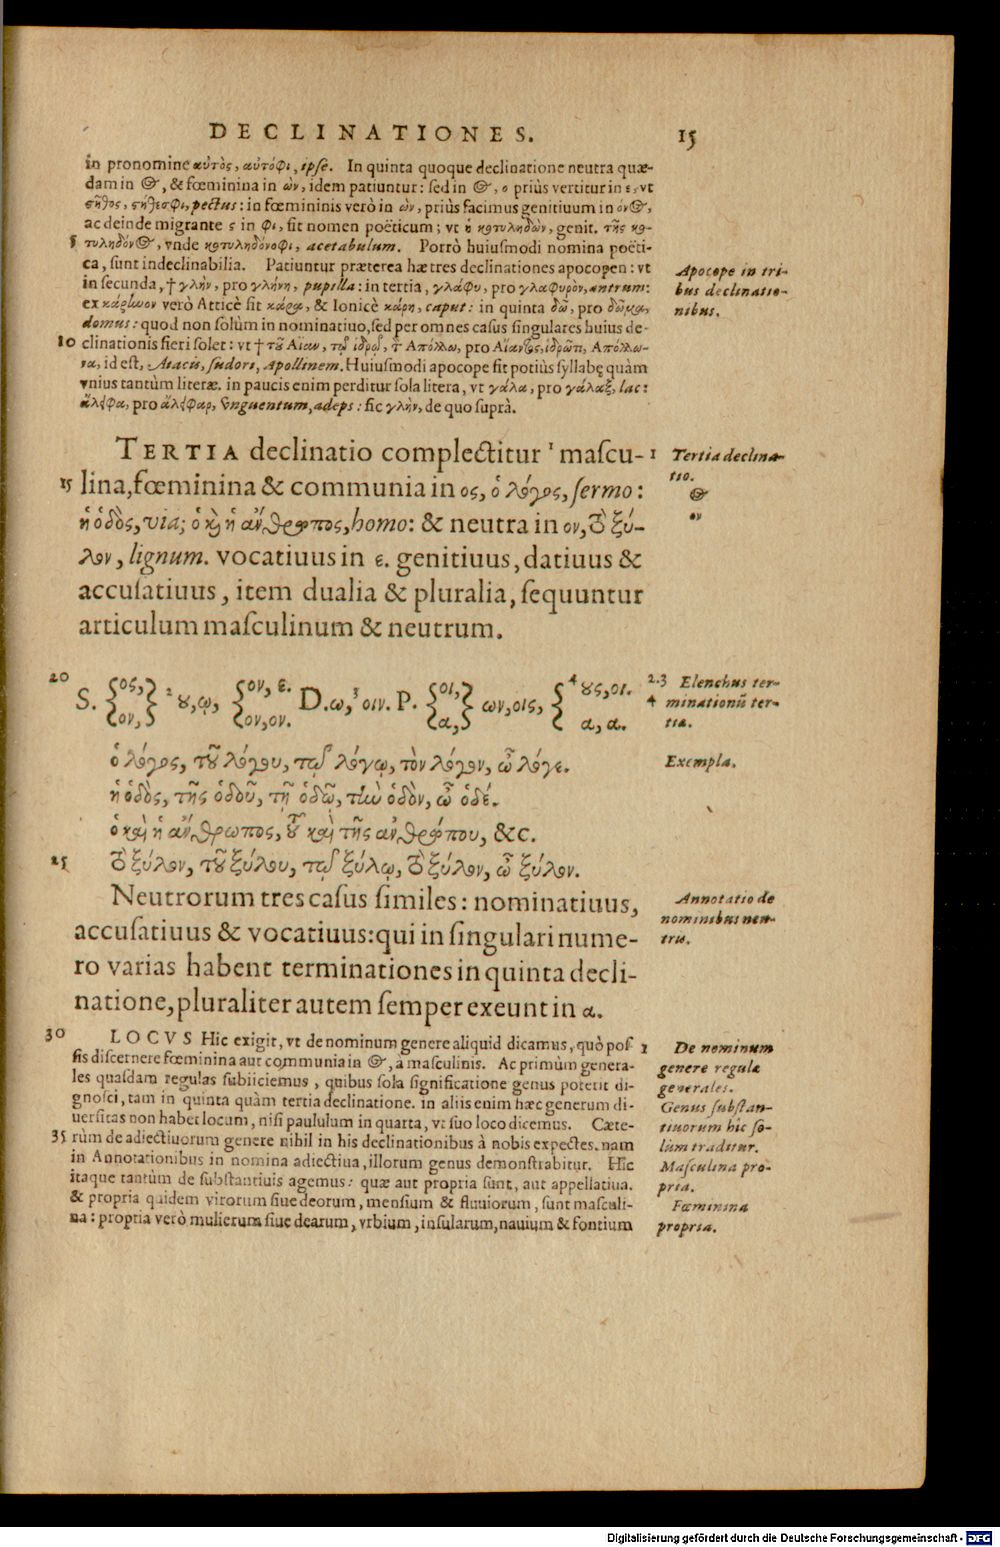 DECLINATIONES. 15
in pronomine αὐτὸς, αὐτόφι, ipſe. In quinta quoque declinatione neutra quæ-
dam in ος, & fœminina in ὼν, idem patiuntur: ſed in ος, ο priùs vertitur in ε, vt
στῆθος, στήθεσφι, pectus: in fœmininis verò in ὼν, priùs facimus genitiuum in όνος,
ac deinde migrante ς in φι, fit nomen poëticum; vt ἡ κοτυληδὼν, genit. τῆς κο-
5 τυληδόνος, vnde κοτυληδόνοφι, acetabulum. Porrò huiuſmodi nomina poëti-
ca, ſunt indeclinabilia. Patiuntur præterea hæ tres declinationes apocopen: vt
Apocope in tri-
bus declinatio-
nibus.
in ſecunda, τ γλὴν, pro γλήνη, pupilla: in tertia, γλάφυ, pro γλαφυρὸν, antrum:
ex κάρηνον verò Atticè fit κάρα, & Ionicè κάρη, caput: in quinta δῶ, pro δῶμα,
domus: quod non ſolùm in nominatiuo, ſed per omnes caſus ſingulares huius de-
10 clinationis fieri ſolet: vt τ τοῦ Αἴαν, τῷ ἱδρῷ, τ Απόλλω, pro Αἴαντος, ἱδρῶτι, Απόλλω-
να, id eſt, Aiacis, ſudori, Apollinem. Huiuſmodi apocope fit potiùs ſyllabę quàm
vnius tantùm literæ. in paucis enim perditur ſola litera, vt γάλα, pro γάλαξ, lac:
ἄλειφα, pro ἄλειφαρ, vnguentum, adeps: ſic γλὴν, de quo ſuprà.
TERTIA declinatio complectitur 1 maſcu-
1 Tertia declina-
tio.
ος
ον
15 lina, fœminina & communia in ος, ὁ λόγος, ſermo:
ἡ ὁδὸς, via; ὁ καὶ ἡ ἄνθρωπος, homo: & neutra in ον, τὸ ξύ-
λον, lignum. vocatiuus in ε. genitiuus, datiuus &
accuſatiuus, item dualia & pluralia, ſequuntur
articulum maſculinum & neutrum.
20 S. { ος, ον, } 2 ου, ῳ, { ον, ε. ον, ον. D. ω, 3 οιν. P. { οι, α, } ων, οις, { 4 ους, οι. α, α.
2.3 4 Elenchus ter-
minationũ ter-
tiæ.
ὁ λόγος, τοῦ λόγου, τῷ λόγῳ, τὸν λόγον, ὦ λόγε.
Exempla.
ἡ ὁδὸς, τῆς ὁδοῦ, τῇ ὁδῷ, τὴν ὁδὸν, ὦ ὁδέ.
ὁ καὶ ἡ ἄνθρωπος, τοῦ καὶ τῆς ἀνθρώπου, &c.
25 τὸ ξύλον, τοῦ ξύλου, τῷ ξύλῳ, τὸ ξύλον, ὦ ξύλον.
Neutrorum tres caſus ſimiles: nominatiuus,
Annotatio de
nominibus neu-
tris.
accuſatiuus & vocatiuus: qui in ſingulari nume-
ro varias habent terminationes in quinta decli-
natione, pluraliter autem ſemper exeunt in α.
30 LOCVS Hic exigit, vt de nominum genere aliquid dicamus, quò poſ
1 De nominum
genere regulæ
generales.
ſis diſcernere fœminina aut communia in ος, à maſculinis. Ac primùm genera-
les quaſdam regulas ſubiiciemus, quibus ſola ſignificatione genus poterit di-
gnoſci, tam in quinta quàm tertia declinatione. in aliis enim hæc generum di-
Genus ſubſtan-
tiuorum hic ſo-
lùm traditur.
uerſitas non habet locum, niſi paululum in quarta, vt ſuo loco dicemus. Cæte-
35 rùm de adiectiuorum genere nihil in his declinationibus à nobis expectes. nam
in Annotationibus in nomina adiectiua, illorum genus demonſtrabitur. Hic
Maſculina pro-
pria.
itaque tantùm de ſubſtantiuis agemus: quæ aut propria ſunt, aut appellatiua.
& propria quidem virorum ſiue deorum, menſium & fluuiorum, ſunt maſculi-
Fœminina
propria.
na: propria verò mulierum ſiue dearum, vrbium, inſularum, nauium & fontium
Digitalisierung gefördert durch die Deutsche Forschungsgemeinschaft - DFG